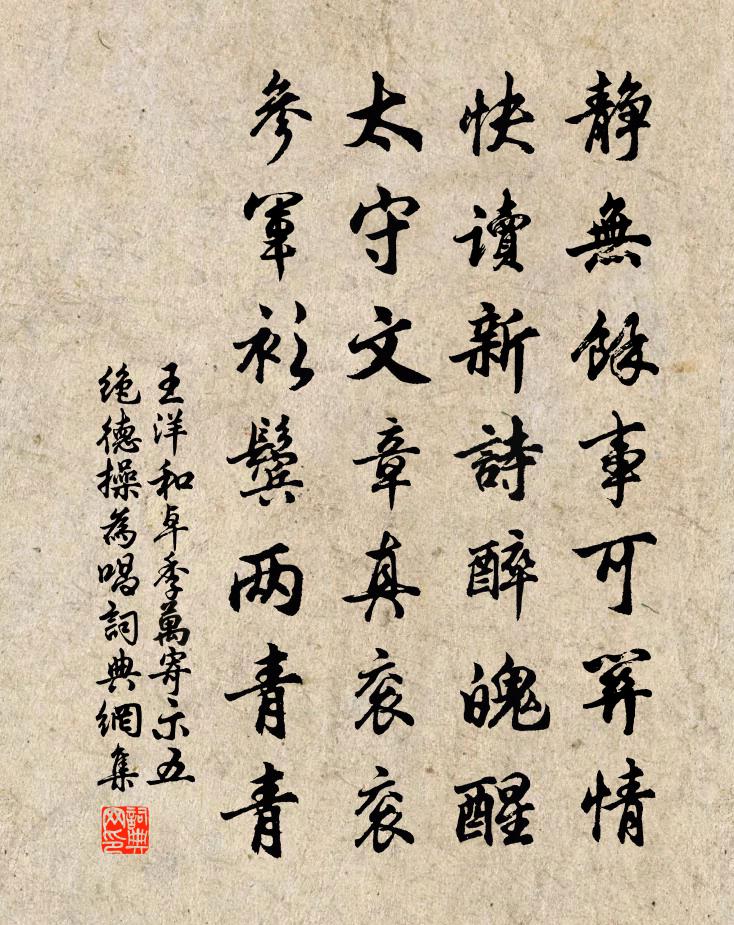 静無餘事可關情
快讀新詩醉魄醒
太守文章真衮衮
參軍衫鬢两青青
王洋和卓季萬寄示五
絶德操為唱詞典網集
詞典网印